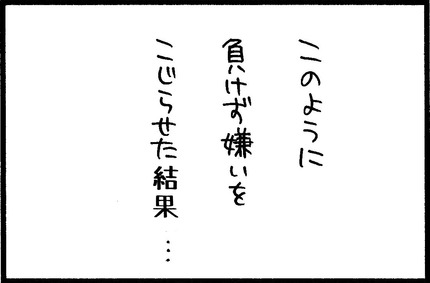 このように
負けず嫌いを
こじらせた結果…